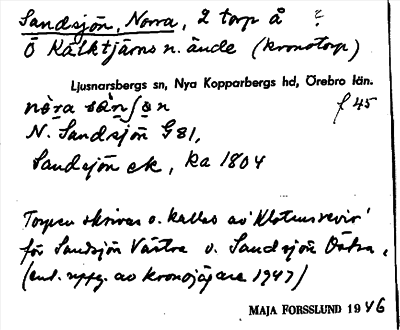 Sandsjön, Norra, 2 torp å ?
Ö Kalktjärns n. ände (kronotorp)
Ljusnarsbergs sn, Nya Kopparbergs hd, Örebro län.
nòra sàn∫ọn f 45
N. Sandsjön G 81,
Sandsjön ek, ka 1804
Torpen skrivas o. kallas av Klotensrevir
för Sandsjön Västra o. Sandsjön Östra,
(enl. uppg. av kronojägare 1947)
MAJA FORSSLUND 1946